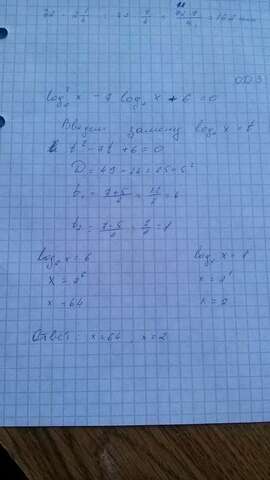 ОДЗ
log₂² x - 7 log₂ x + 6 = 0
Введем замену log₂ x = t
t² - 7t + 6 = 0
D = 49 - 24 = 25 = 5²
t₁ = (7+5)/2 = 12/2 = 6
t₂ = (7-5)/2 = 2/2 = 1
log₂ x = 6 log₂ x = 1
x = 2⁶ x = 2¹
x = 64 x = 2
Ответ: x = 64, x = 2